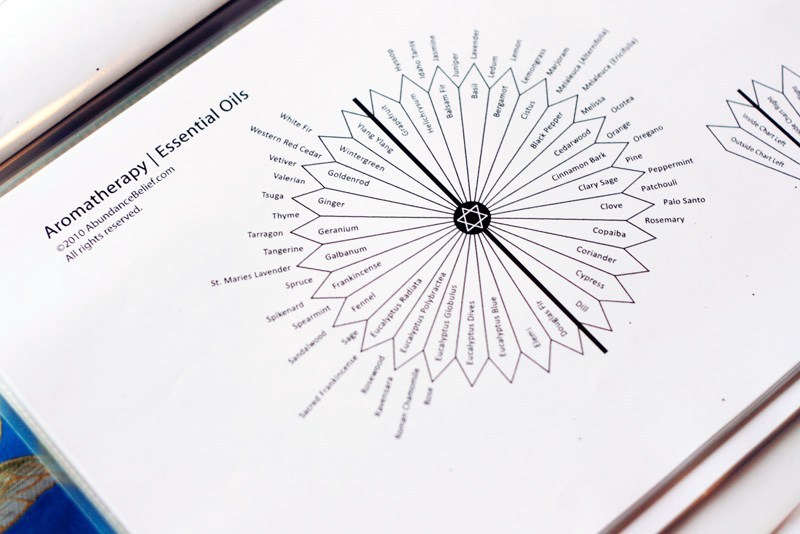 Aromatherapy | Essential Oils
©2010 AbundanceBelief.com
All rights reserved.
White Fir
Western Red Cedar
Vetiver
Valerian
Tsuga
Thyme
Tarragon
Tangerine
St. Maries Lavender
Spruce
Spikenard
Spearmint
Sandalwood
Sage
Sacred Frankincense
Rosewood
Ravensara
Roman Chamomile
Rose
Hyssop
Idaho Tansy
Jasmine
Juniper
Lavender
Ledum
Lemon
Lemongrass
Marjoram
Melaleuca (Alternifolia)
Melaleuca (Ericifolia)
Melissa
Ocotea
Orange
Oregano
Pine
Peppermint
Patchouli
Palo Santo
Rosemary
Ylang Ylang
Wintergreen
Goldenrod
Ginger
Geranium
Galbanum
Frankincense
Fennel
Eucalyptus Radiata
Eucalyptus Polybractea
Eucalyptus Globulus
Eucalyptus Dives
Eucalyptus Blue
Elemi
Douglas Fir
Dill
Cypress
Coriander
Copaiba
Clove
Clary Sage
Cinnamon Bark
Cedarwood
Black Pepper
Cistus
Bergamot
Basil
Balsam Fir
Helichrysum
Grapefruit
Inside Chart Left
Outside Chart Left